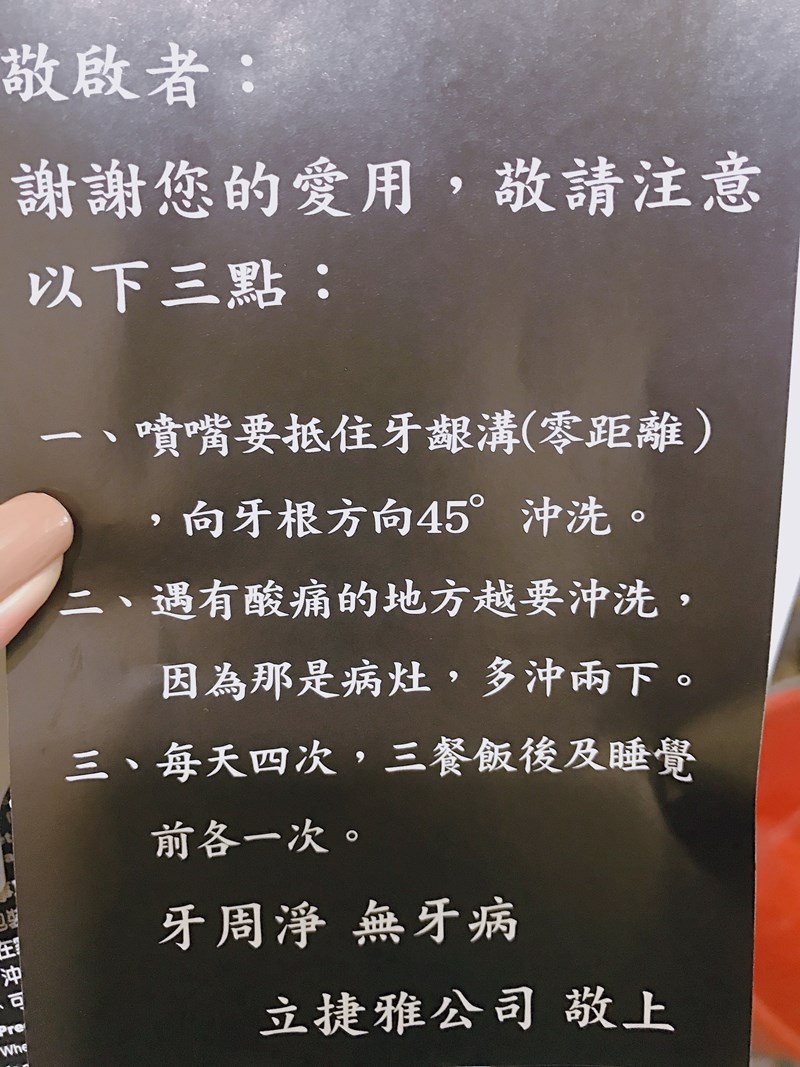 敬啟者：
謝謝您的愛用，敬請注意
以下三點：
一、噴嘴要抵住牙齦溝(零距離)
，向牙根方向45°沖洗。
二、遇有酸痛的地方越要沖洗，
因為那是病灶，多沖兩下。
三、每天四次，三餐飯後及睡覺
前各一次。
牙周淨 無牙病
立捷雅公司 敬上
在
沖
可
Pre
Whe